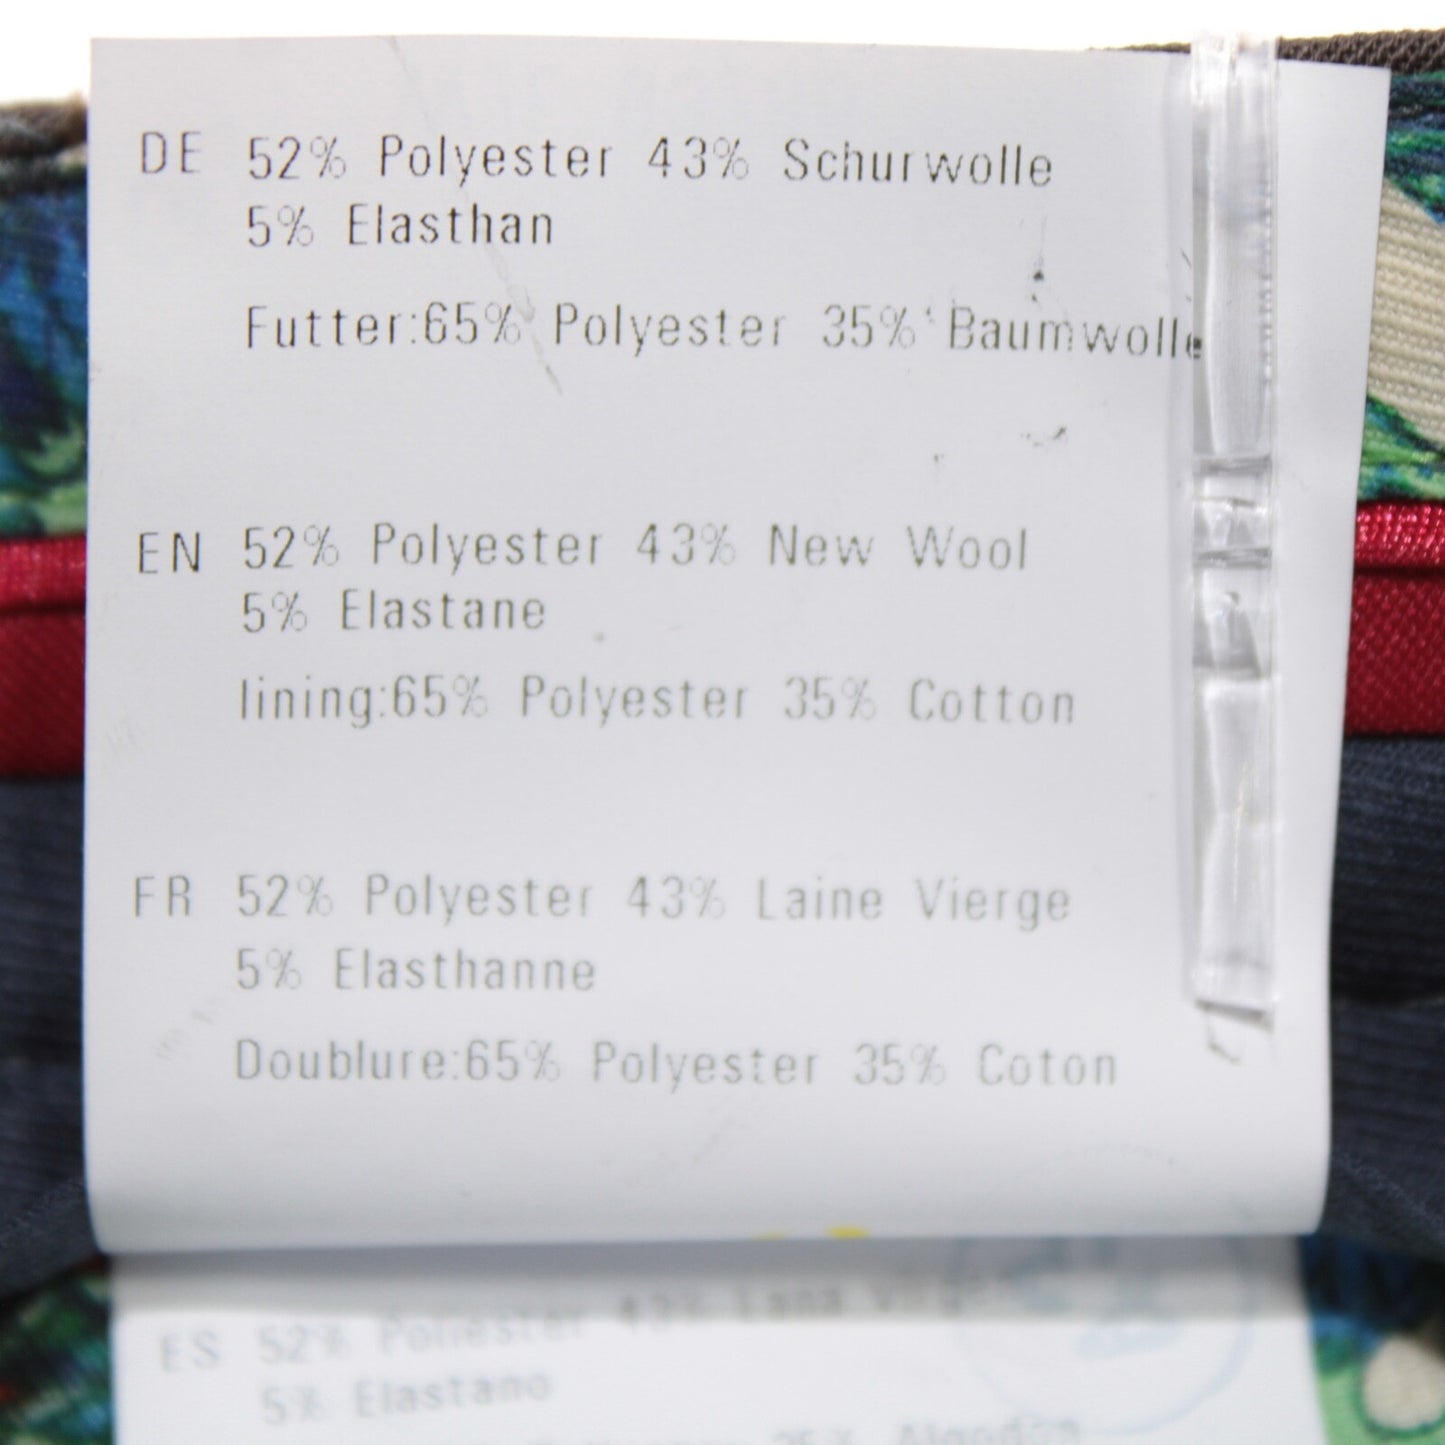 DE 52% Polyester 43% Schurwolle
5% Elasthan
Futter:65% Polyester 35% Baumwolle
EN 52% Polyester 43% New Wool
5% Elastane
lining:65% Polyester 35% Cotton
FR 52% Polyester 43% Laine Vierge
5% Elasthanne
Doublure:65% Polyester 35% Coton
ES 52% Poliester 43% Lana virgen
5% Elastano
35% Algodón